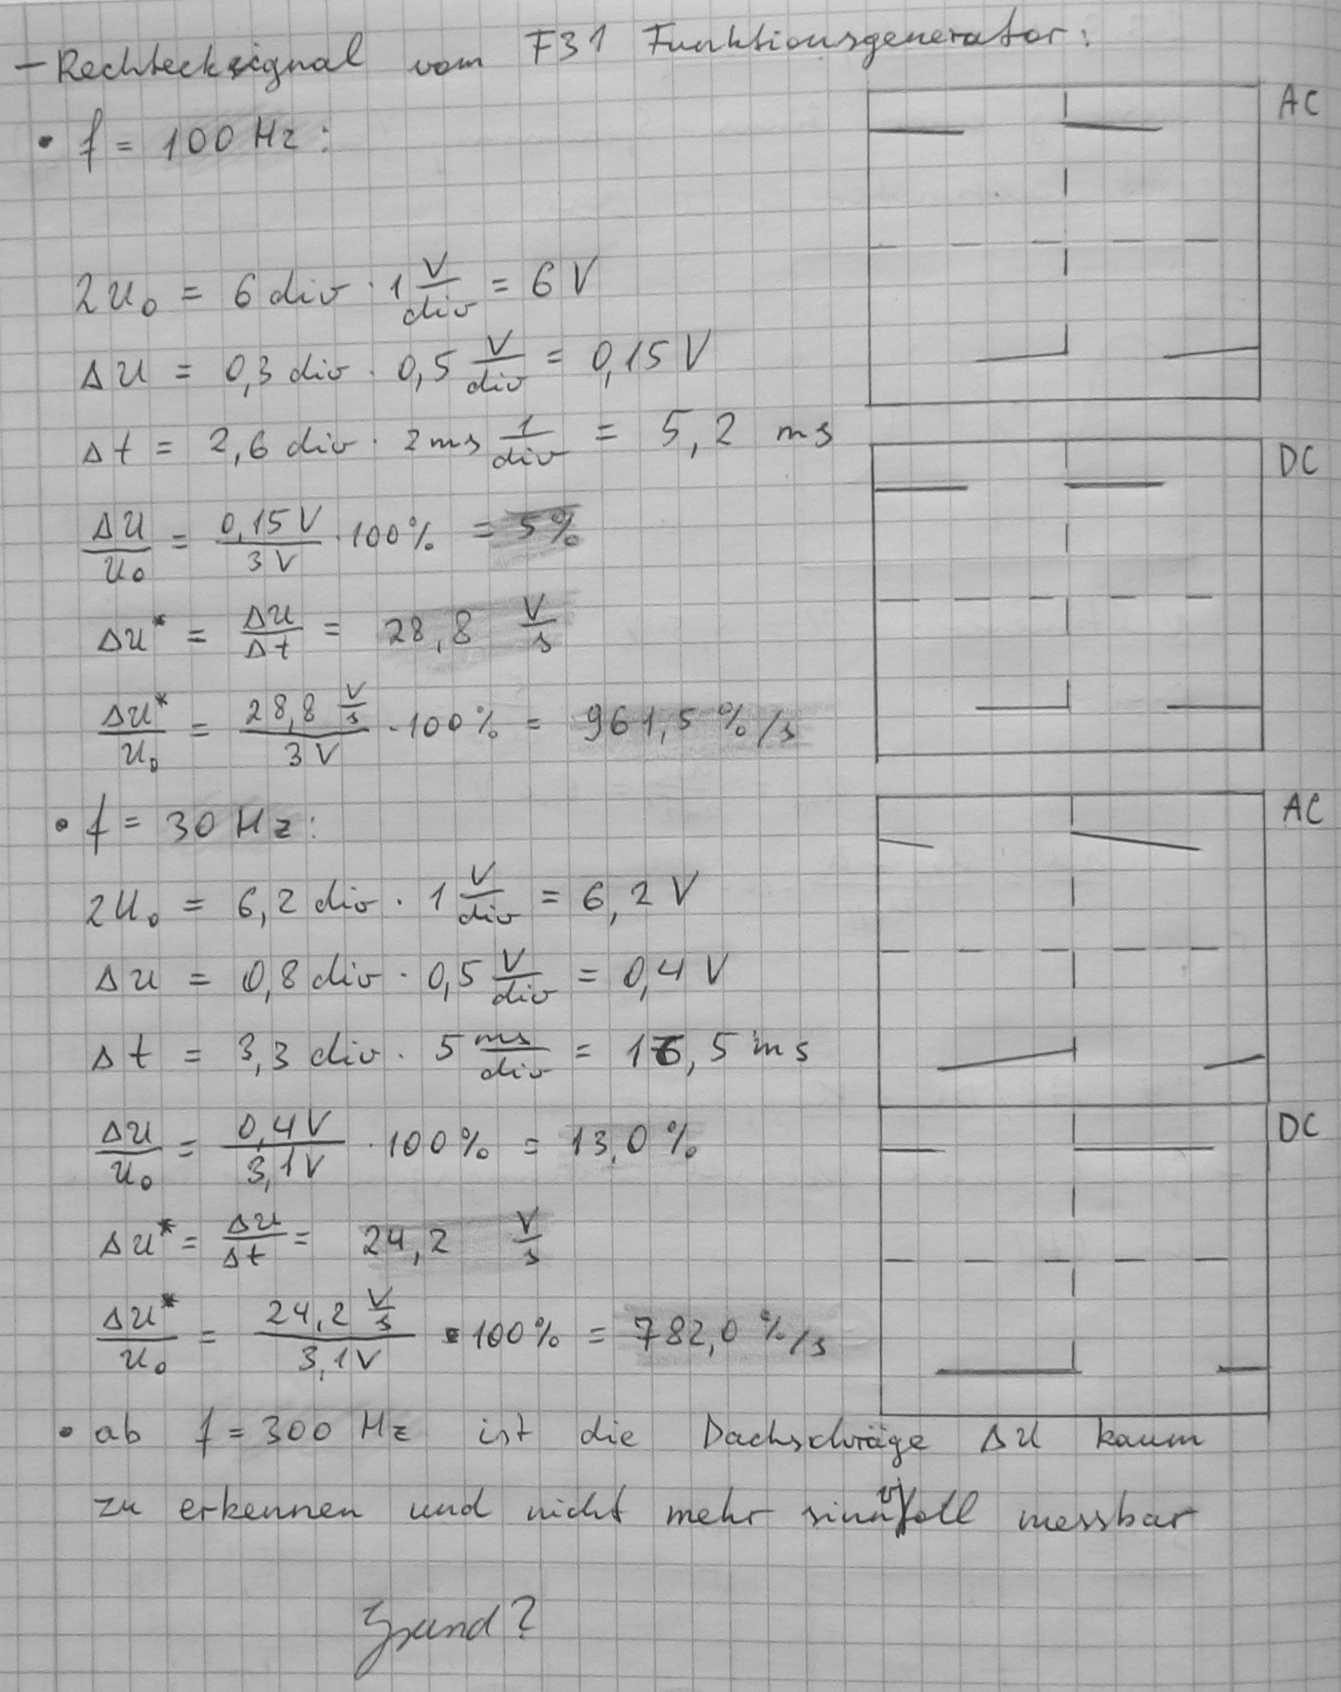 – Rechtecksignal vom F31 Funktionsgenerator:
• f = 100 Hz:
AC
2u₀ = 6 div · 1 V/div = 6 V
Δu = 0,3 div · 0,5 V/div = 0,15 V
Δt = 2,6 div · 2ms 1/div = 5,2 ms
DC
Δu/u₀ = 0,15V/3V · 100% = 5%
Δu* = Δu/Δt = 28,8 V/s
Δu*/u₀ = 28,8 V/s / 3V · 100% = 961,5 %/s
• f = 30 Hz:
AC
2u₀ = 6,2 div · 1 V/div = 6,2 V
Δu = 0,8 div · 0,5 V/div = 0,4 V
Δt = 3,3 div · 5 ms/div = 16,5 ms
Δu/u₀ = 0,4V/3,1V · 100% = 13,0 %
DC
Δu* = Δu/Δt = 24,2 V/s
Δu*/u₀ = 24,2 V/s / 3,1V · 100% = 782,0 %/s
• ab f = 300 Hz ist die Dachschräge Δu kaum
zu erkennen und nicht mehr sinnvoll messbar
Grund?